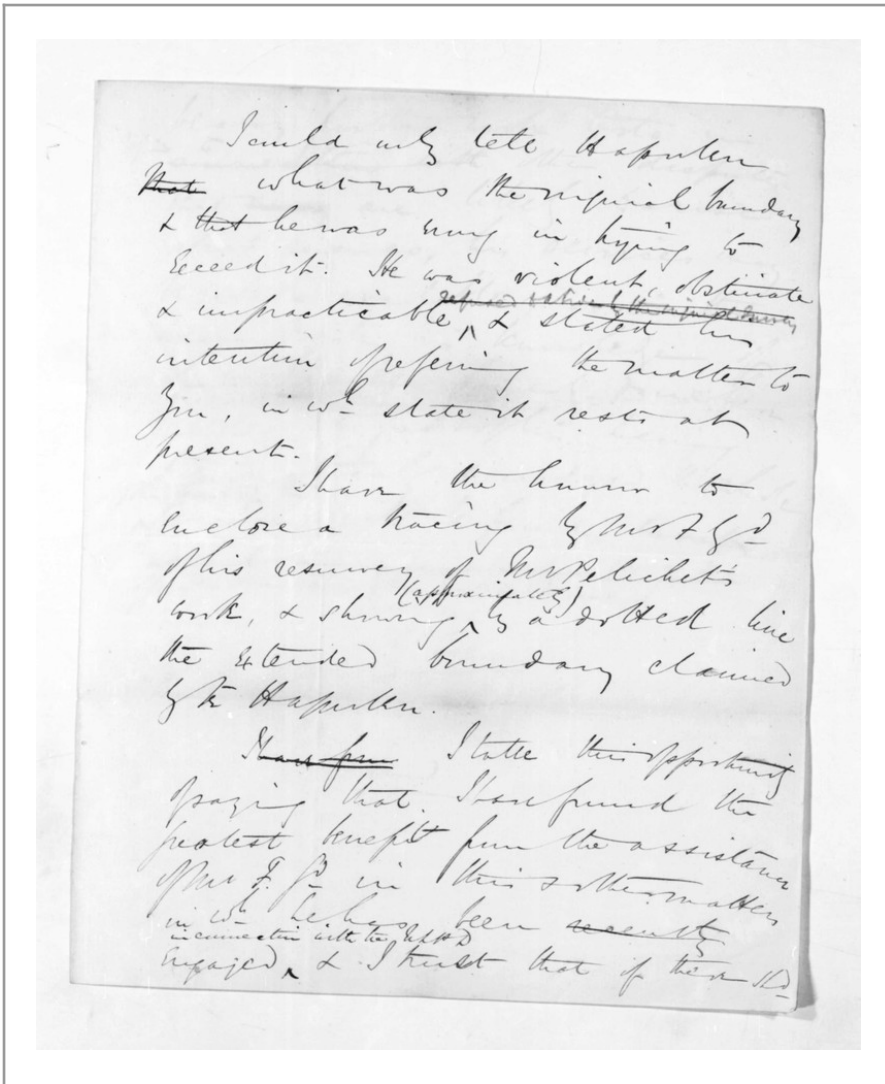 I could only tell Hapuku
That what was the original boundary
& that he was wrong in trying to
exceed it. He was violent, obstinate
refused
& impracticable, ^ & stated his
intention of referring the matter to
you, in wh. state it rests at
present.
I have the honor to
enclose a tracing by Mr F Gd
of his resurvey of Mr Pelichet's
(approximately)
work, & showing ^ by a dotted line
the extended boundary claimed
by Te Hapuku.
I have foun I take this opportunity
of saying that I have found the
greatest benefit from the assistance
of Mr F. Gd in this & other matters
in wh. he has been recently
in connection with the
engaged, ^ & I trust that if there shd